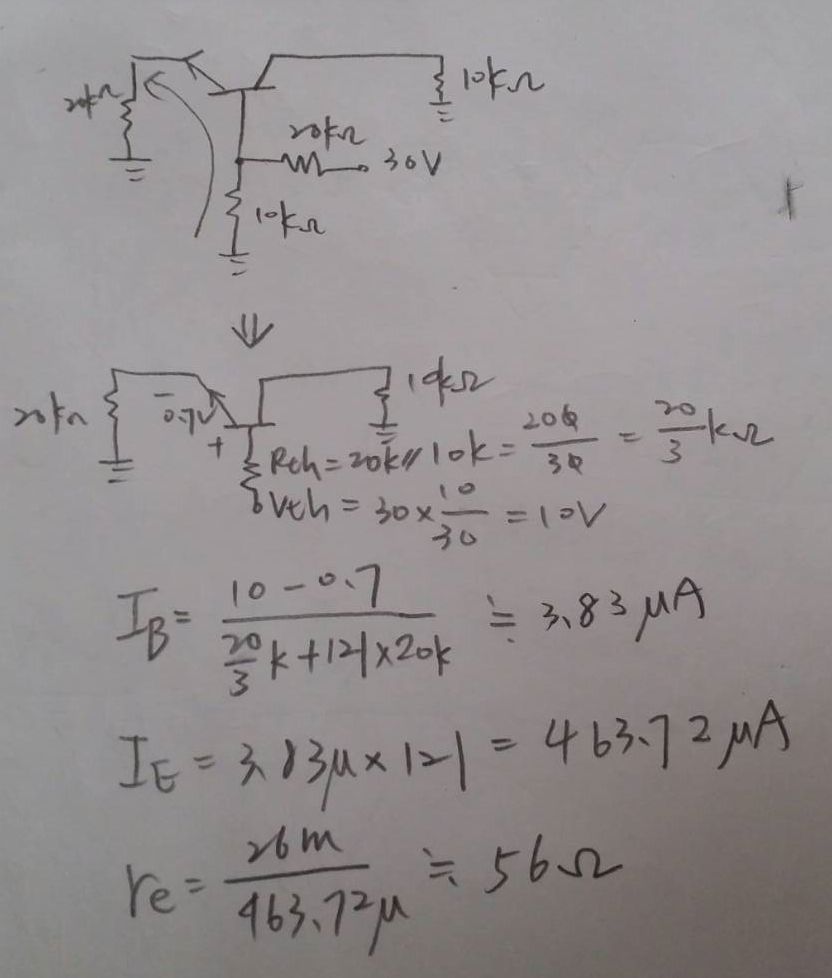 20kΩ
10kΩ
20kΩ
30V
10kΩ
⇓
20kΩ
- 0.7V +
10kΩ
Rth = 20k // 10k = 200/30 = 20/3 kΩ
Vth = 30 × 10/30 = 10V
I_B = (10 - 0.7)/(20/3 k + 121 × 20k) ≒ 3.83 μA
I_E = 3.83μ × 121 = 463.72 μA
re = 26m/463.72μ ≒ 56Ω